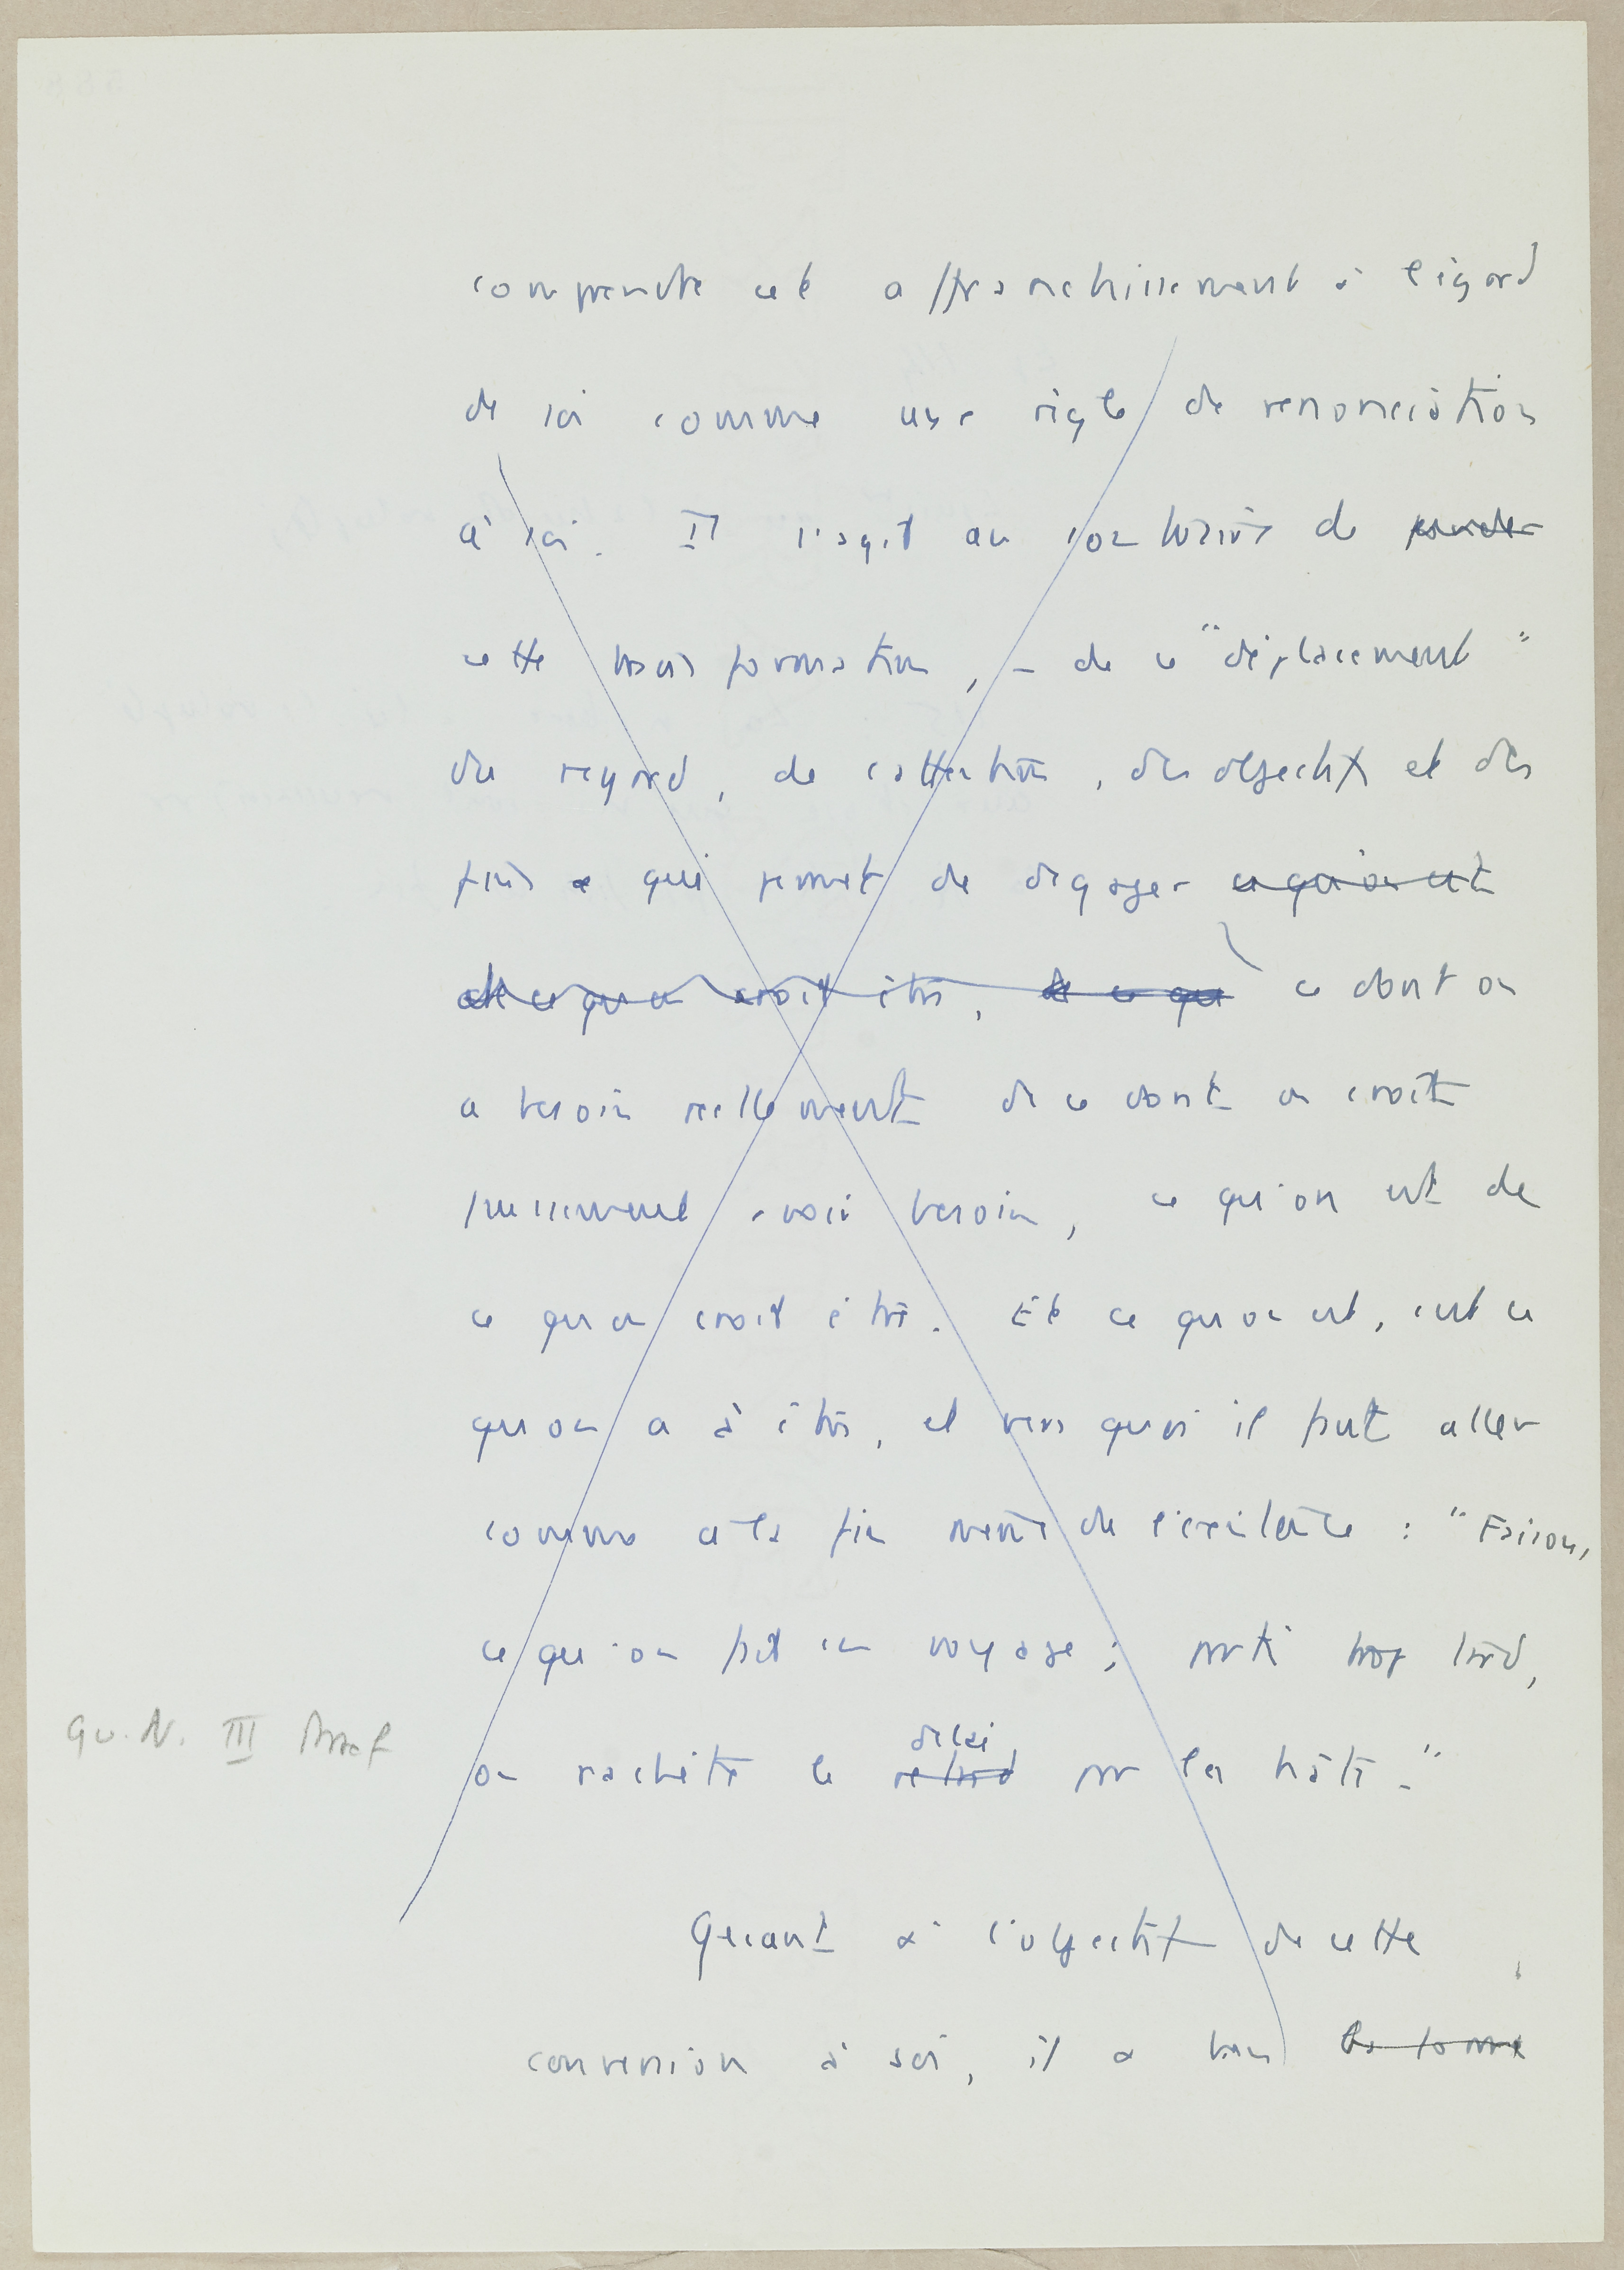 comprendre cet affranchissement à l'égard
de soi comme une règle de renonciation
à soi. Il s'agit au contraire de
cette transformation, - de ce "déplacement"
du regard, de l'attention, des objectifs et des
fins qui permet de dégager ce qu'on est
de ce qu'on croit être, de ce que ce dont on
a besoin réellement de ce dont on croit
faussement avoir besoin, ce qu'on est de
ce qu'on croit être. Et ce qu'on est, c'est ce
qu'on a à être, et vers quoi il faut aller
comme à la fin même de l'existence : "Faisons,
ce qu'on fait en voyage ; parti trop tard,
Qu. N. III Praef
délai
on rachète le retard par la hâte."
Quant à l'objectif de cette
conversion à soi, il a bien la forme